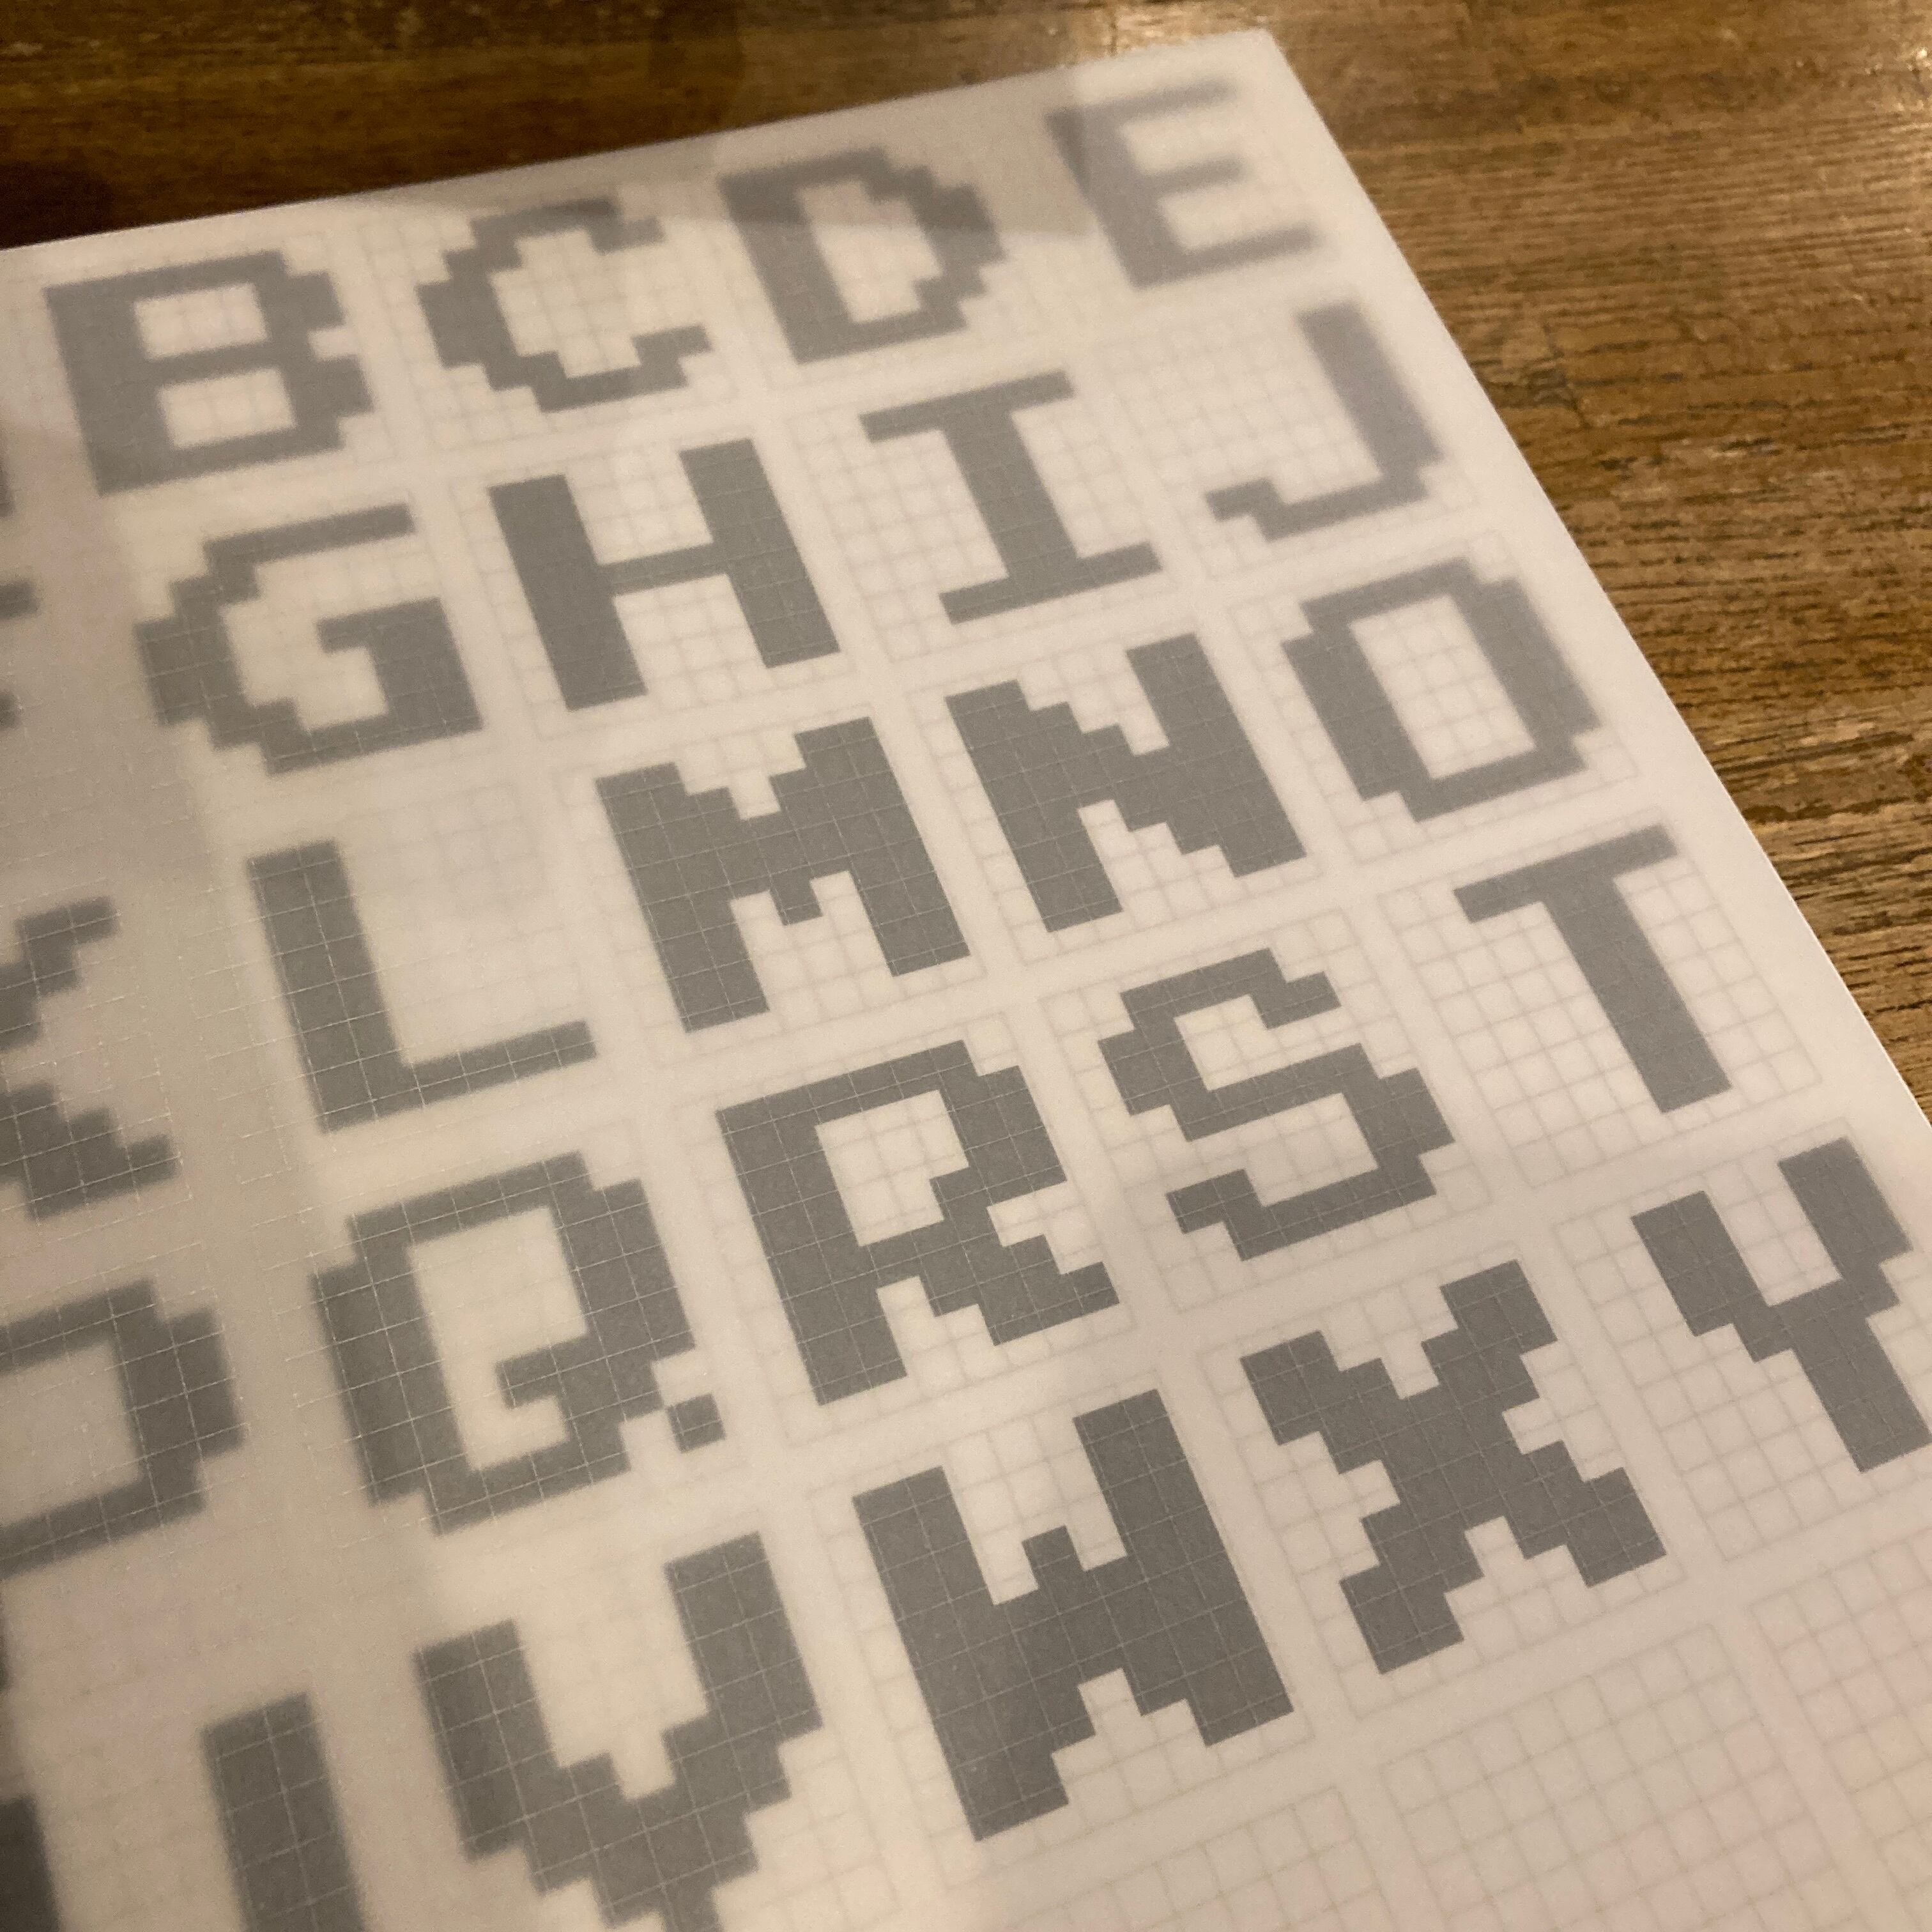 B C D E
G H I J
K L M N O
P Q R S T
U V W X Y